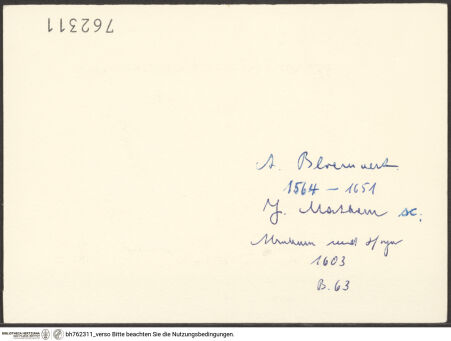 762311
A. Bloemaert
1564 – 1651
J. Matham sc.
und
1603
B. 63
BIBLIOTHECA HERTZIANA
bh762311_verso Bitte beachten Sie die Nutzungsbedingungen.